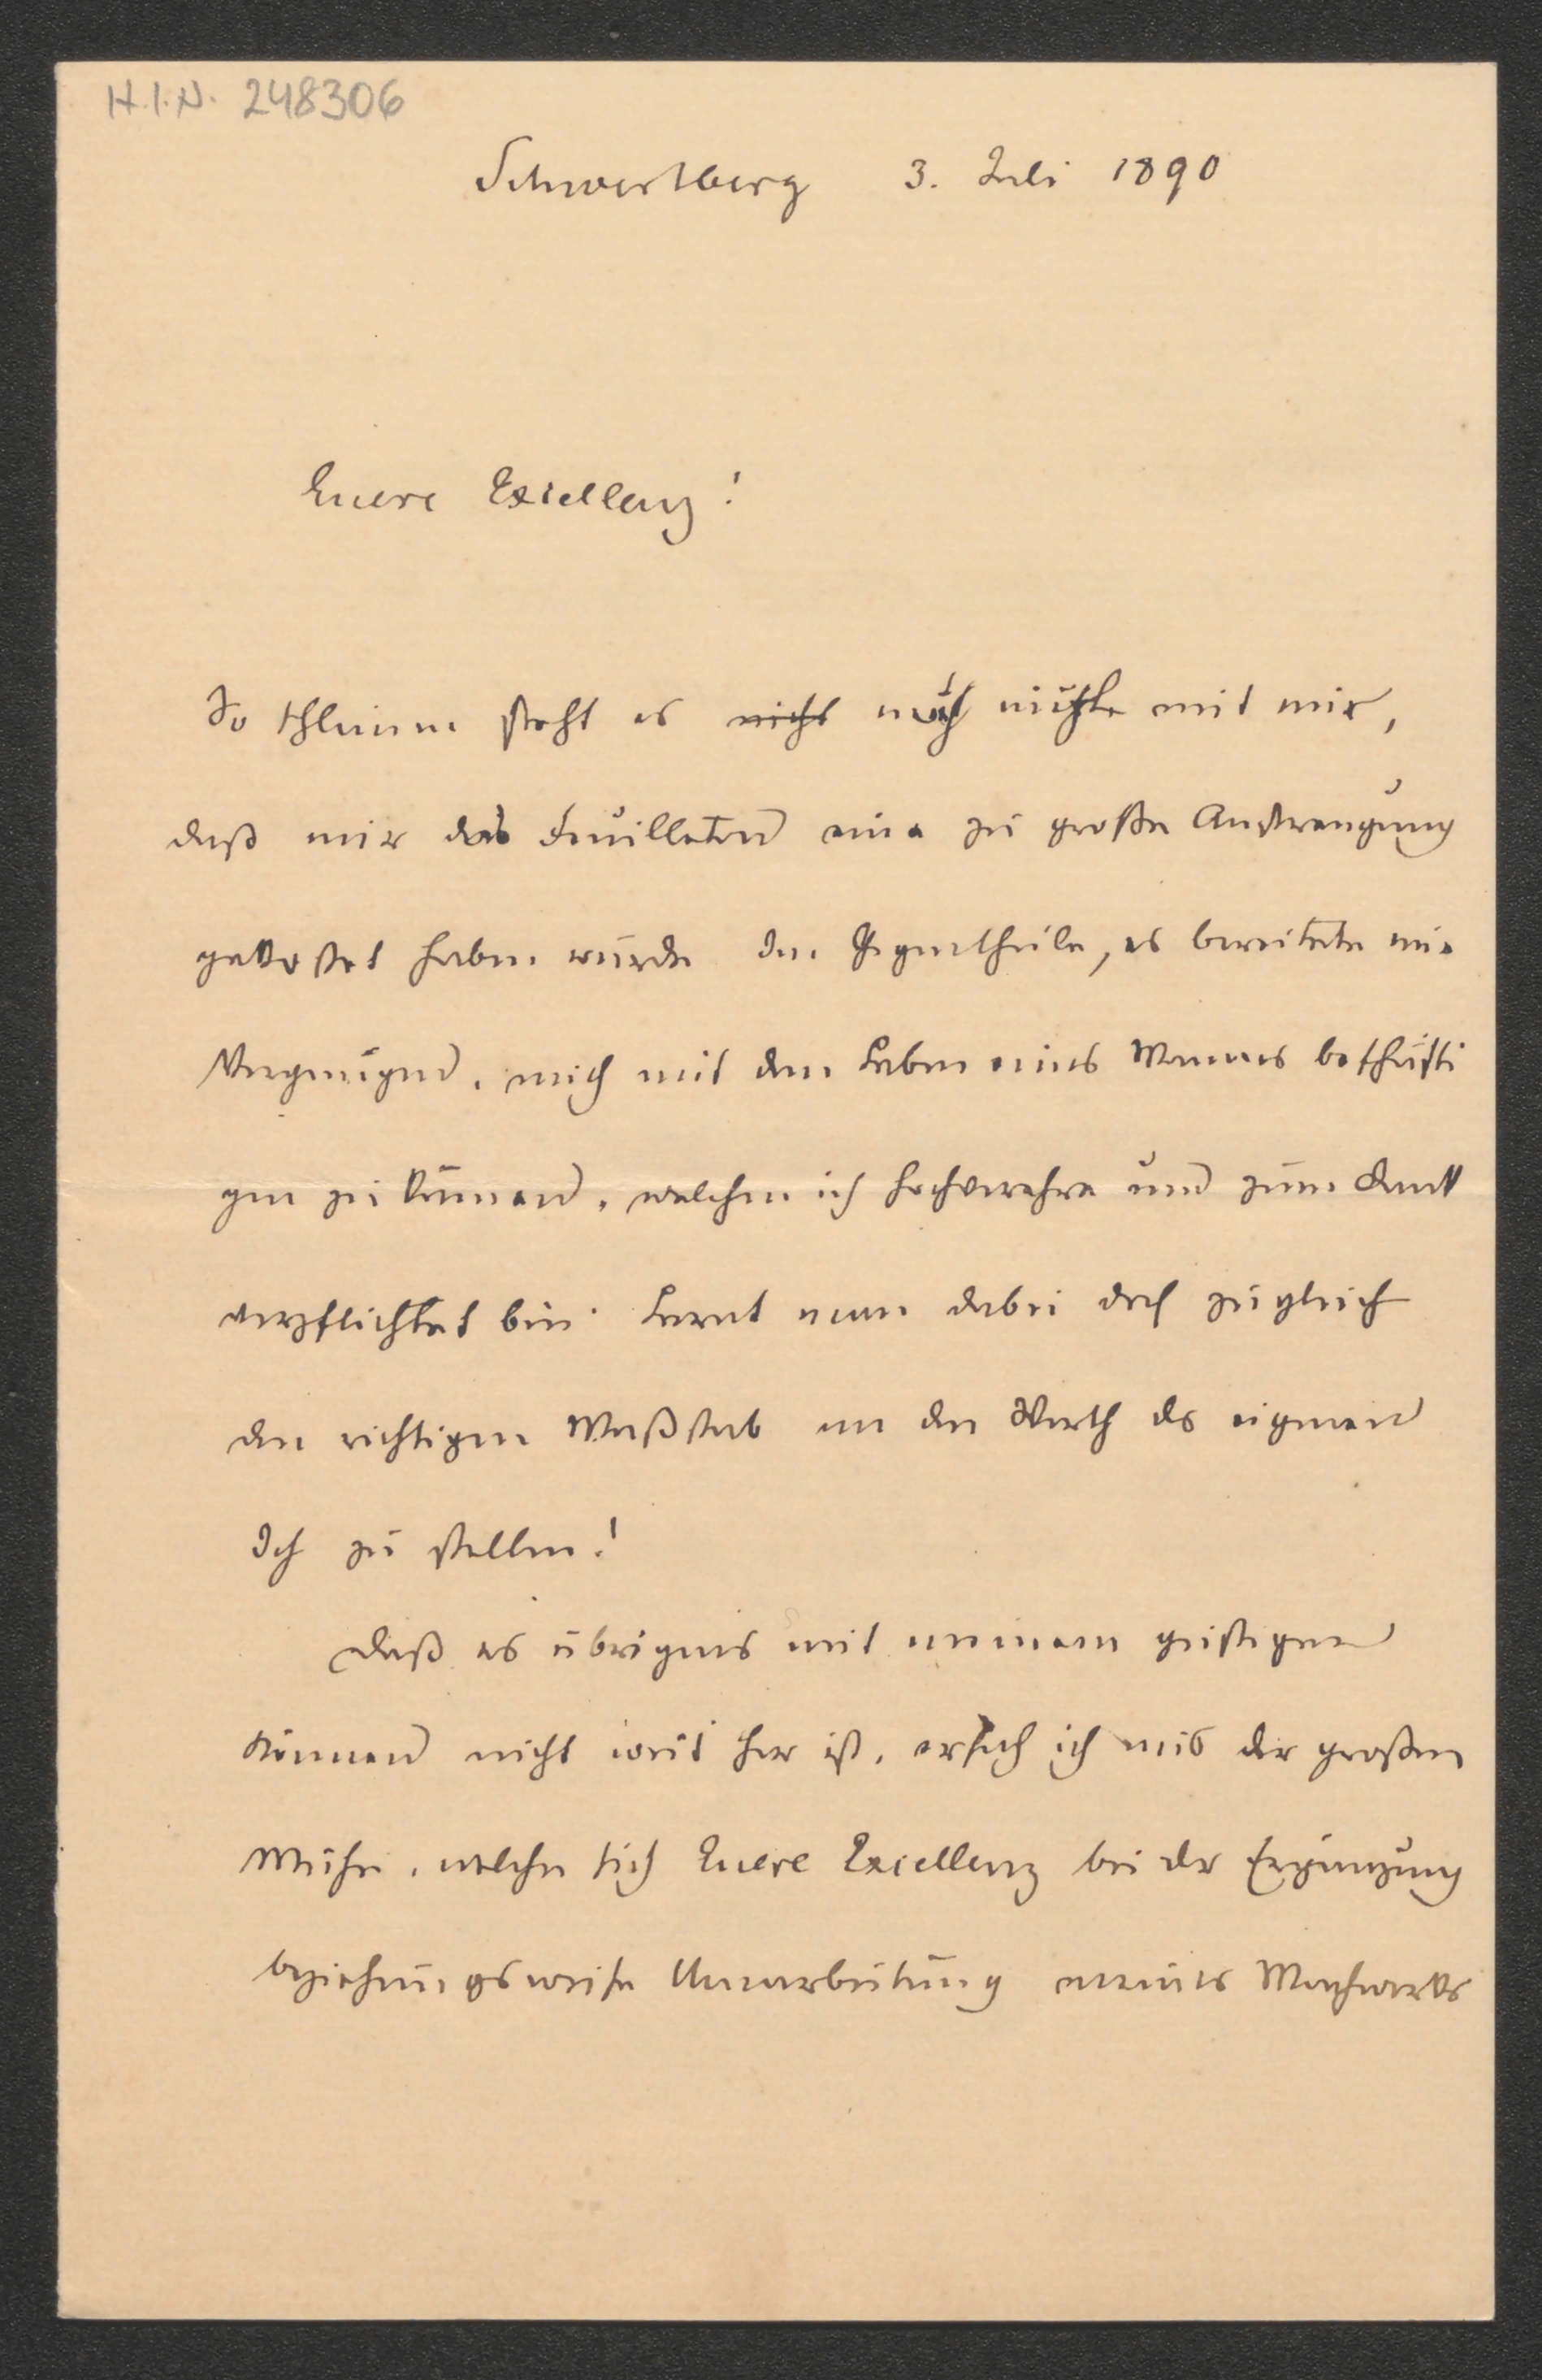 H.I.N. 248306
Schwertberg 3. Juli 1890
Euere Excellenz!
So schlimm steht es nicht noch nicht mit mir,
daß mir das Feuilleton eine zu große Anstrengung
gekostet haben würde Im Gegentheile, es bereitete mir
Vergnügen, mich mit dem Leben eines Mannes beschäfti
gen zu können, welchen ich hochverehre und zum Dank
verpflichtet bin. Lernt man dabei doch zugleich
den richtigen Maßstab an den Werth des eigenen
Ich zu stellen!
Daß es übrigens mit meinem geistigen
Können nicht weit her ist, ersah ich aus der großen
Mühe, welche sich Euere Excellenz bei der Ergänzung
beziehungsweise Umarbeitung meines Machwerks